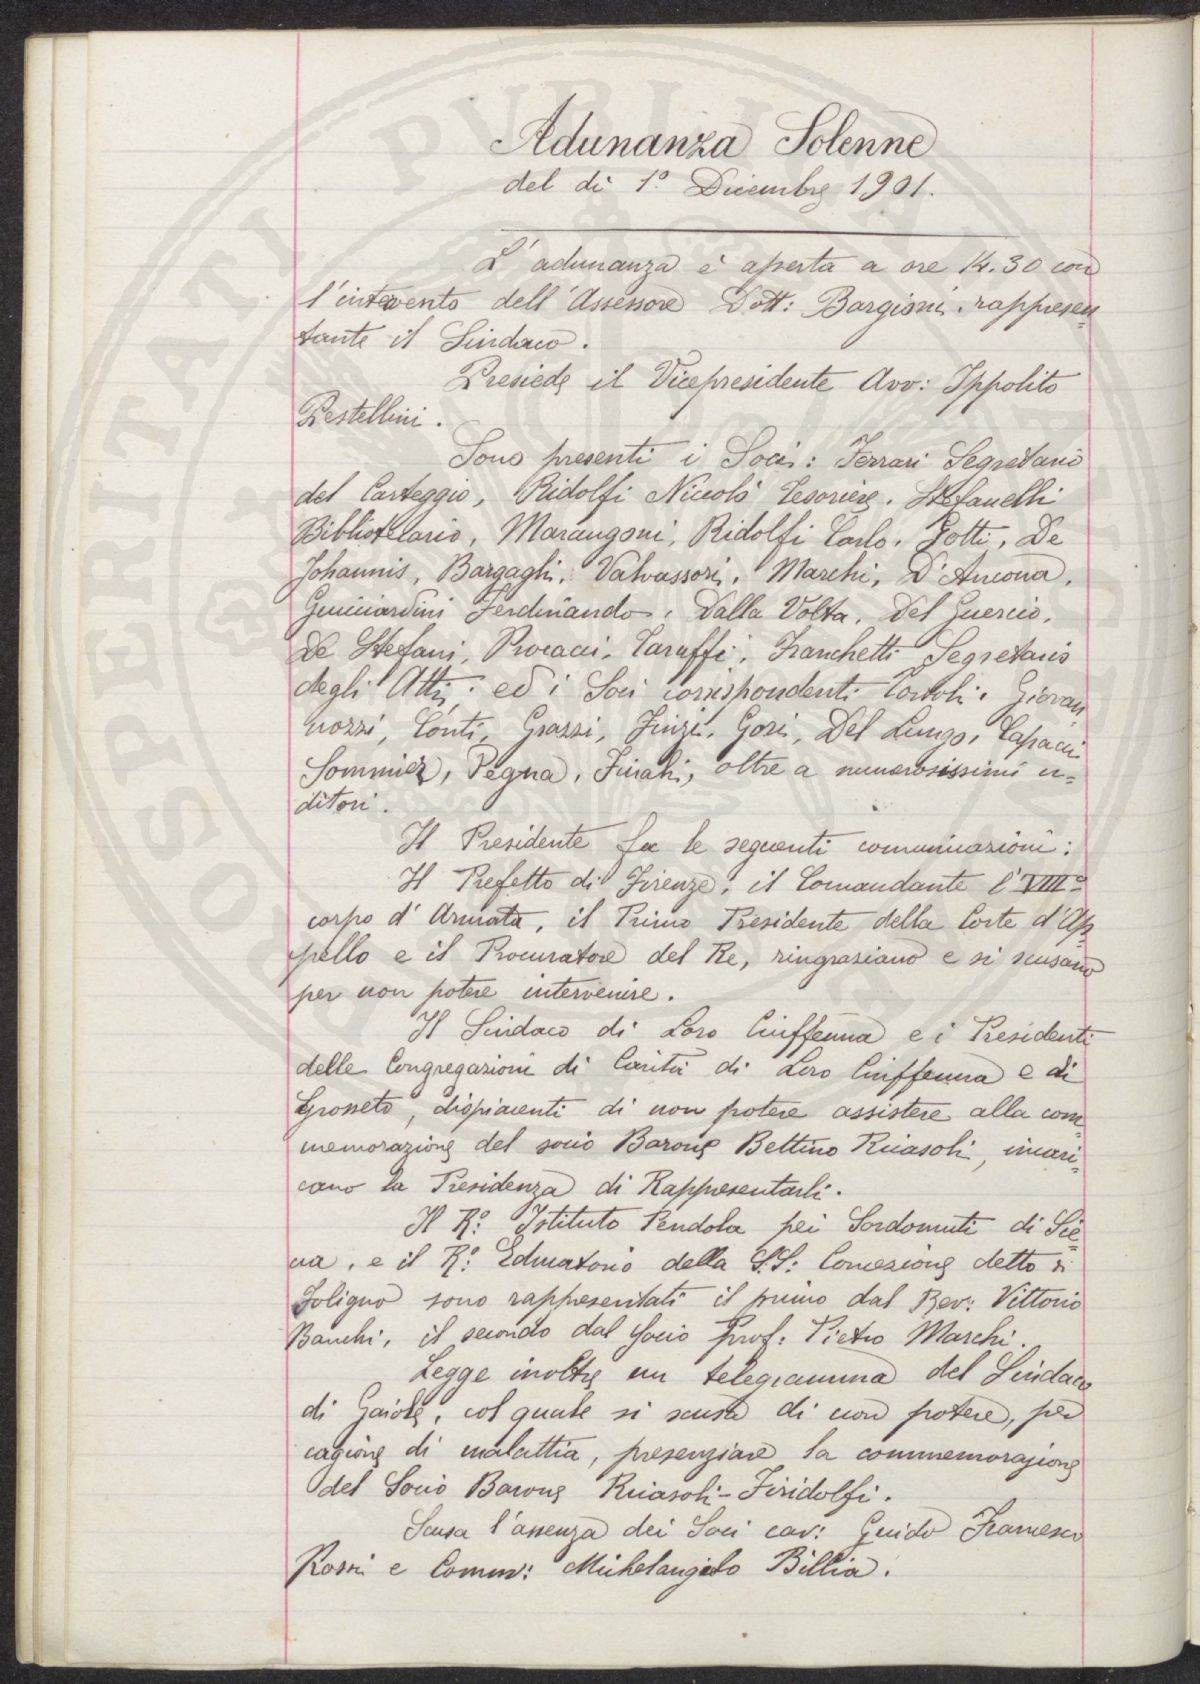 Adunanza Solenne
del dì 1º Dicembre 1901.
L'adunanza è aperta a ore 14.30 con
l'intervento dell'Assessore Dott: Bargioni, rappresen-
tante il Sindaco.
Presiede il Vicepresidente Avv: Ippolito
Pestellini.
Sono presenti i Soci: Ferrari Segretario
del Carteggio, Ridolfi Niccolò Tesoriere, Stefanelli
Bibliotecario, Marangoni, Ridolfi Carlo, Gotti, De
Johannis, Bargagli, Valvassori, Marchi, D'Ancona,
Guicciardini Ferdinando, Dalla Volta, Del Guercio,
De Stefani, Procacci, Taruffi, Franchetti Segretario
degli Atti; ed i Soci corrispondenti Giovan-
nozzi, Conti, Grassi, Finzi, Gori, Del Lungo, Capacci
Sommier, Pegna, oltre a numerosissimi u-
ditori.
Il Presidente fa le seguenti comunicazioni:
Il Prefetto di Firenze, il Comandante l'VIIIº
corpo d'Armata, il Primo Presidente della Corte d'Ap-
pello e il Procuratore del Re, ringraziano e si scusano
per non potere intervenire.
Il Sindaco di Loro Ciuffenna e i Presidenti
delle Congregazioni di Carità di Loro Ciuffenna e di
Grosseto, dispiacenti di non potere assistere alla com-
memorazione del socio Barone Bettino Ricasoli, incari-
cano la Presidenza di Rappresentarli.
Il R.º Istituto Pendola pei Sordomuti di Sie-
na, e il R.º Educatorio della S.S. Concezione detto di
Foligno sono rappresentati il primo dal Rev: Vittorio
Banchi, il secondo dal Socio Prof: Pietro Marchi.
Legge inoltre un telegramma del Sindaco
di Gaiole, col quale si scusa di non potere, per
cagione di malattia, presenziare la commemorazione
del Socio Barone Ricasoli-Firidolfi.
Scusa l'assenza dei Soci cav: Guido Francesco
Rossi e Comm: Michelangelo Billia.